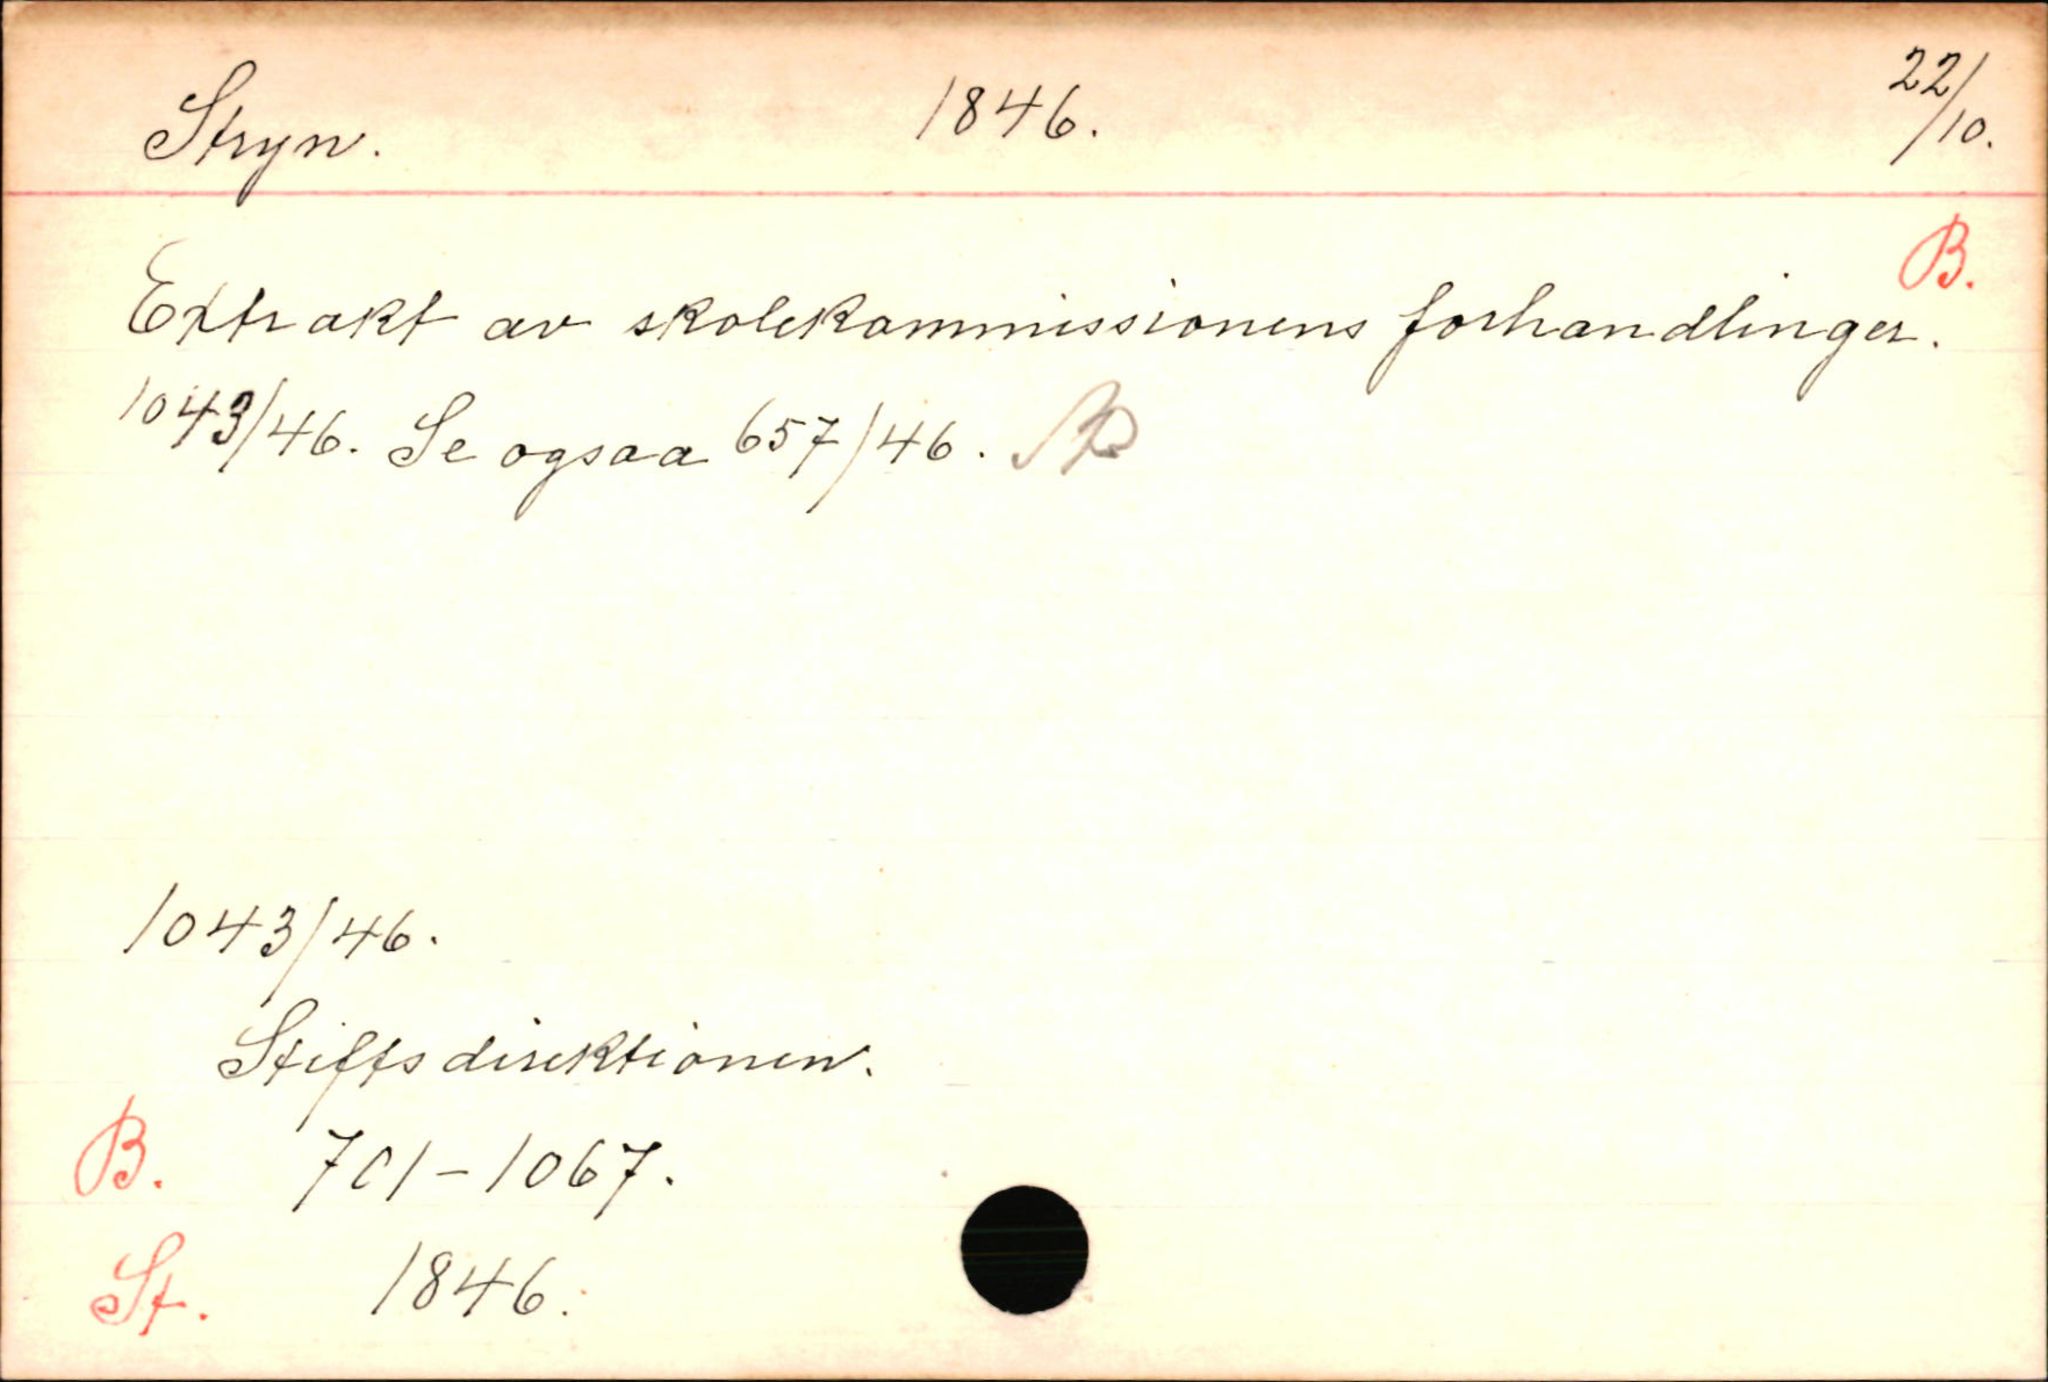 Stryn. 1846. 22/10.
B.
Extrakt av skolekommissionens forhandlinger.
1043/46. Se ogsaa 657/46.
1043/46.
Stiftsdirektionen.
B. 701-1067.
St. 1846.